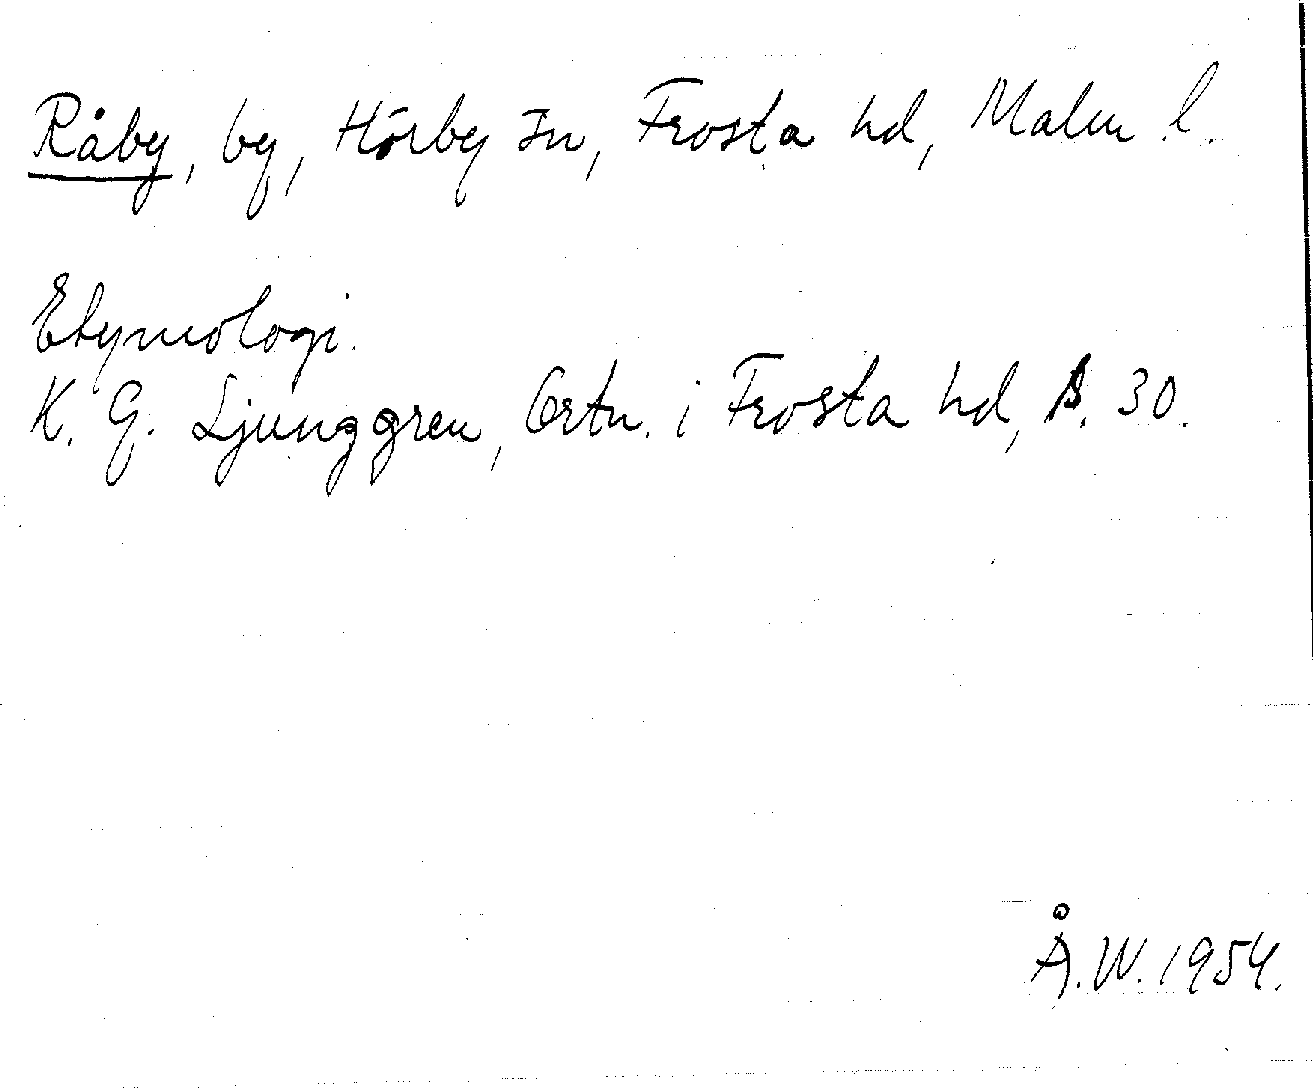 Råby, by, Hörby sn, Frosta hd, Malm. l.
Etymologi.
K. G. Ljunggren, Ortn. i Frosta hd, s. 30.
Å. W. 1954.